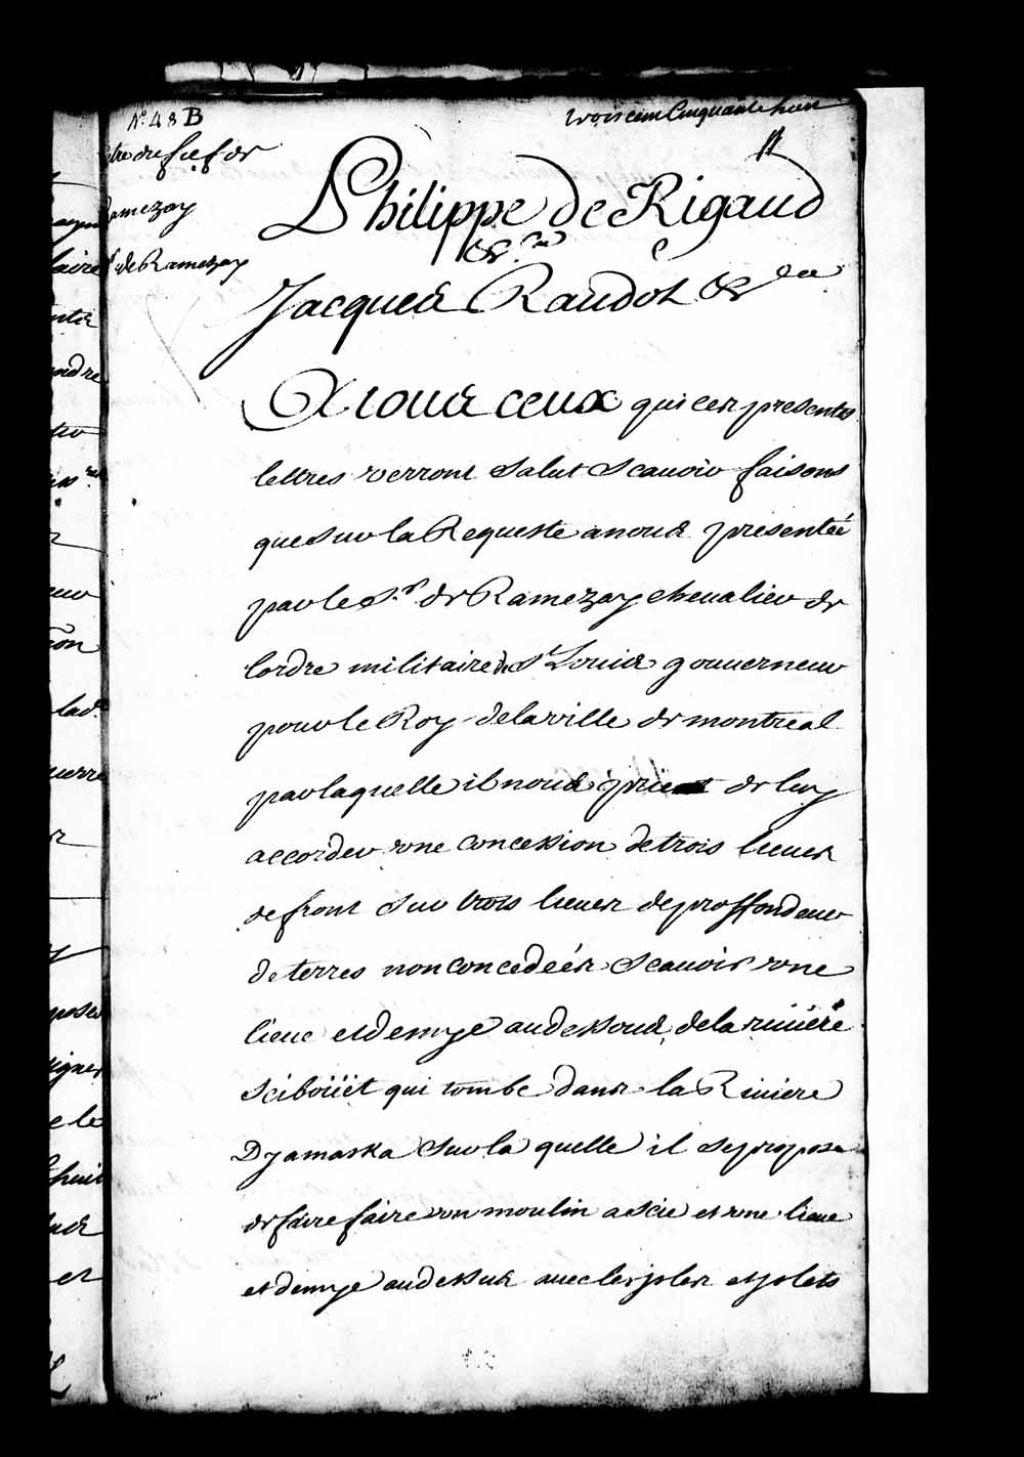 N.º 48 B
trois cent Cinquante huit
tre du fief de
amezay
de Ramezay
Philippe de Rigaud
&.ca
Jacques Raudot &ca
A tous ceux qui ces presentes
lettres verront Salut Scauoir faisons
que sur la Requeste a nous presenteé
par le S.r de Ramezay cheualier de
lordre militaire de St Louis gouuerneur
pour le Roy de la ville de montreal
par laquelle il nous prie de luy
accorder vne Concession de trois lieues
de front sur trois lieues de proffondeur
de terres non concedeés Scauoir vne
lieue et demye au dessous de la riuiére
Sciboüet qui tombe dans la Riuiere
Dyamaska sur la quelle il se propose
de faire faire vn moulin a scie et vne lieue
et demye au dessus auec les isles et islets
aire
ndre
lad.e
uerre
poser
igner
e le
huit
et